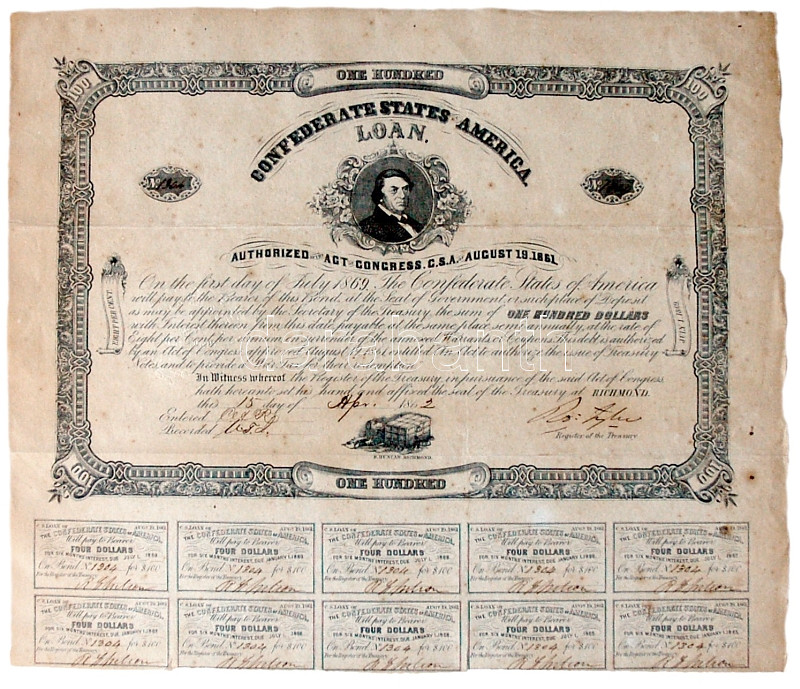 ONE HUNDRED
100 100
CONFEDERATE STATES AMERICA.
LOAN.
1304
AUTHORIZED ACT CONGRESS, C.S.A. AUGUST 19. 1861.
On the first day of July 1869, The Confederate States of America
will pay to the Bearer of this Bond, at the Seat of Government, or such place of Deposit
as may be appointed by the Secretary of the Treasury, the sum of ONE HUNDRED DOLLARS
with Interest thereon from this date payable at the same place semi annually, at the rate of
Eight per Cent per annum, on surrender of the annexed Warrants or Coupons. This debt is authorized
by an Act of Congress approved August entitled An Act to authorize the issue of Treasury
Notes, and to provide a War Tax for their redemption.
EIGHT PER CENT.
JULY 1. 1869
In Witness whereof the Register of the Treasury, in pursuance of the said Act of Congress
hath hereunto set his hand and affixed the seal of the Treasury at RICHMOND.
this 15 day of Apr. 1862
Entered
Recorded
Ro: Tyler
Register of the Treasury
RICHMOND.
100 100
ONE HUNDRED
C.S. LOAN OF AUGT 19, 1861.
THE CONFEDERATE STATES OF AMERICA,
Will pay to Bearer
FOUR DOLLARS
FOR SIX MONTHS INTEREST, DUE JULY 1,
On Bond N 1304 for $100
For the Register of the Treasury
C.S. LOAN OF AUGT 19, 1861.
THE CONFEDERATE STATES OF AMERICA,
Will pay to Bearer
FOUR DOLLARS
FOR SIX MONTHS INTEREST, DUE JANUARY 1,
On Bond N 1304 for $100
For the Register of the Treasury
C.S. LOAN OF AUGT 19, 1861.
THE CONFEDERATE STATES OF AMERICA,
Will pay to Bearer
FOUR DOLLARS
FOR SIX MONTHS INTEREST, DUE JULY 1,
On Bond N 1304 for $100
For the Register of the Treasury
C.S. LOAN OF AUGT 19, 1861.
THE CONFEDERATE STATES OF AMERICA,
Will pay to Bearer
FOUR DOLLARS
FOR SIX MONTHS INTEREST, DUE JANUARY 1,
On Bond N 1304 for $100
For the Register of the Treasury
C.S. LOAN OF AUGT 19, 1861.
THE CONFEDERATE STATES OF AMERICA,
Will pay to Bearer
FOUR DOLLARS
FOR SIX MONTHS INTEREST, DUE JULY 1,
On Bond N 1304 for $100
For the Register of the Treasury
C.S. LOAN OF AUGT 19, 1861.
THE CONFEDERATE STATES OF AMERICA,
Will pay to Bearer
FOUR DOLLARS
FOR SIX MONTHS INTEREST, DUE JANUARY 1,
On Bond N 1304 for $100
For the Register of the Treasury
C.S. LOAN OF AUGT 19, 1861.
THE CONFEDERATE STATES OF AMERICA,
Will pay to Bearer
FOUR DOLLARS
FOR SIX MONTHS INTEREST, DUE JULY 1,
On Bond N 1304 for $100
For the Register of the Treasury
C.S. LOAN OF AUGT 19, 1861.
THE CONFEDERATE STATES OF AMERICA,
Will pay to Bearer
FOUR DOLLARS
FOR SIX MONTHS INTEREST, DUE JANUARY 1,
On Bond N 1304 for $100
For the Register of the Treasury
C.S. LOAN OF AUGT 19, 1861.
THE CONFEDERATE STATES OF AMERICA,
Will pay to Bearer
FOUR DOLLARS
FOR SIX MONTHS INTEREST, DUE JULY 1,
On Bond N 1304 for $100
For the Register of the Treasury
C.S. LOAN OF AUGT 19, 1861.
THE CONFEDERATE STATES OF AMERICA,
Will pay to Bearer
FOUR DOLLARS
FOR SIX MONTHS INTEREST, DUE JANUARY 1,
On Bond N 1304 for $100
For the Register of the Treasury